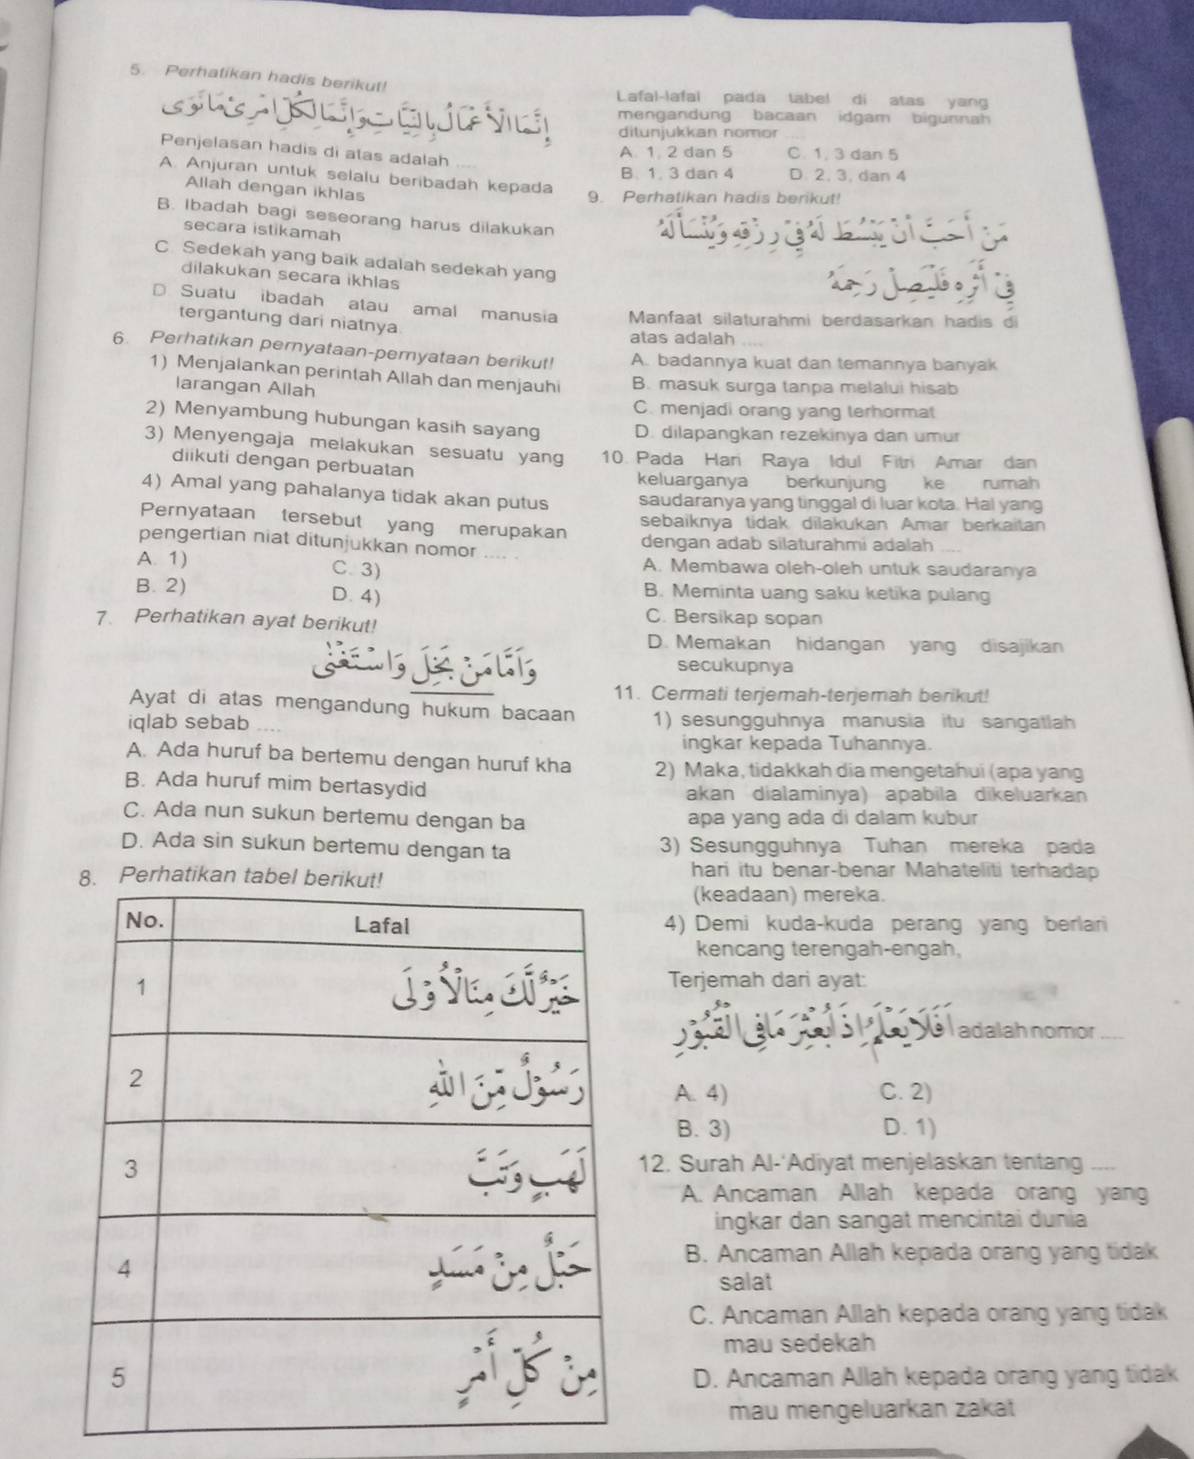 5. Perhatikan hadis berikut!
إِنَّمَا الْأَعْمَالُ بِالنِّيَّاتِ وَإِنَّمَا لِكُلِّ امْرِئٍ مَا نَوَى
Penjelasan hadis di atas adalah ....
A. Anjuran untuk selalu beribadah kepada
Allah dengan ikhlas
B. Ibadah bagi seseorang harus dilakukan
secara istikamah
C. Sedekah yang baik adalah sedekah yang
dilakukan secara ikhlas
D Suatu ibadah atau amal manusia
tergantung dari niatnya
6. Perhatikan pernyataan-pernyataan berikut!
1) Menjalankan perintah Allah dan menjauhi
larangan Allah
2) Menyambung hubungan kasih sayang
3) Menyengaja melakukan sesuatu yang
diikuti dengan perbuatan
4) Amal yang pahalanya tidak akan putus
Pernyataan tersebut yang merupakan
pengertian niat ditunjukkan nomor .... .
A. 1) C. 3)
B. 2) D. 4)
7. Perhatikan ayat berikut!
وَأَمَّا مَنْ بَخِلَ وَاسْتَغْنَى
Ayat di atas mengandung hukum bacaan
iqlab sebab ....
A. Ada huruf ba bertemu dengan huruf kha
B. Ada huruf mim bertasydid
C. Ada nun sukun bertemu dengan ba
D. Ada sin sukun bertemu dengan ta
8. Perhatikan tabel berikut!
No. Lafal
1 خَيْرٌ لَّكَ مِنَ الْأُوْلَ
2 رَسُوْلٌ مِّنَ اللهِ
3 لَهَبٍ وَتَبَّ
4 حَبْلٌ مِنْ مَسَدٍ
5 مِنْ كُلِّ أَمْرٍ
Lafal-lafal pada tabel di atas yang
mengandung bacaan idgam bigunnah
ditunjukkan nomor ....
A. 1, 2 dan 5 C. 1, 3 dan 5
B. 1, 3 dan 4 D. 2, 3, dan 4
9. Perhatikan hadis berikut!
مَنْ أَحَبَّ أَنْ يُبْسَطَ لَهُ فِيْ رِزْقِهِ وَيُنْسَأَ لَهُ
فِيْ أَثَرِهِ فَلْيَصِلْ رَحِمَهُ
Manfaat silaturahmi berdasarkan hadis di
atas adalah ....
A. badannya kuat dan temannya banyak
B. masuk surga tanpa melalui hisab
C. menjadi orang yang terhormat
D. dilapangkan rezekinya dan umur
10. Pada Hari Raya Idul Fitri Amar dan
keluarganya berkunjung ke rumah
saudaranya yang tinggal di luar kota. Hal yang
sebaiknya tidak dilakukan Amar berkaitan
dengan adab silaturahmi adalah ....
A. Membawa oleh-oleh untuk saudaranya
B. Meminta uang saku ketika pulang
C. Bersikap sopan
D. Memakan hidangan yang disajikan
secukupnya
11. Cermati terjemah-terjemah berikut!
1) sesungguhnya manusia itu sangatlah
ingkar kepada Tuhannya.
2) Maka, tidakkah dia mengetahui (apa yang
akan dialaminya) apabila dikeluarkan
apa yang ada di dalam kubur
3) Sesungguhnya Tuhan mereka pada
hari itu benar-benar Mahateliti terhadap
(keadaan) mereka.
4) Demi kuda-kuda perang yang berlari
kencang terengah-engah,
Terjemah dari ayat:
أَفَلَا يَعْلَمُ إِذَا بُعْثِرَ مَا فِي الْقُبُوْرِ adalah nomor ....
A. 4) C. 2)
B. 3) D. 1)
12. Surah Al-'Adiyat menjelaskan tentang ....
A. Ancaman Allah kepada orang yang
ingkar dan sangat mencintai dunia
B. Ancaman Allah kepada orang yang tidak
salat
C. Ancaman Allah kepada orang yang tidak
mau sedekah
D. Ancaman Allah kepada orang yang tidak
mau mengeluarkan zakat